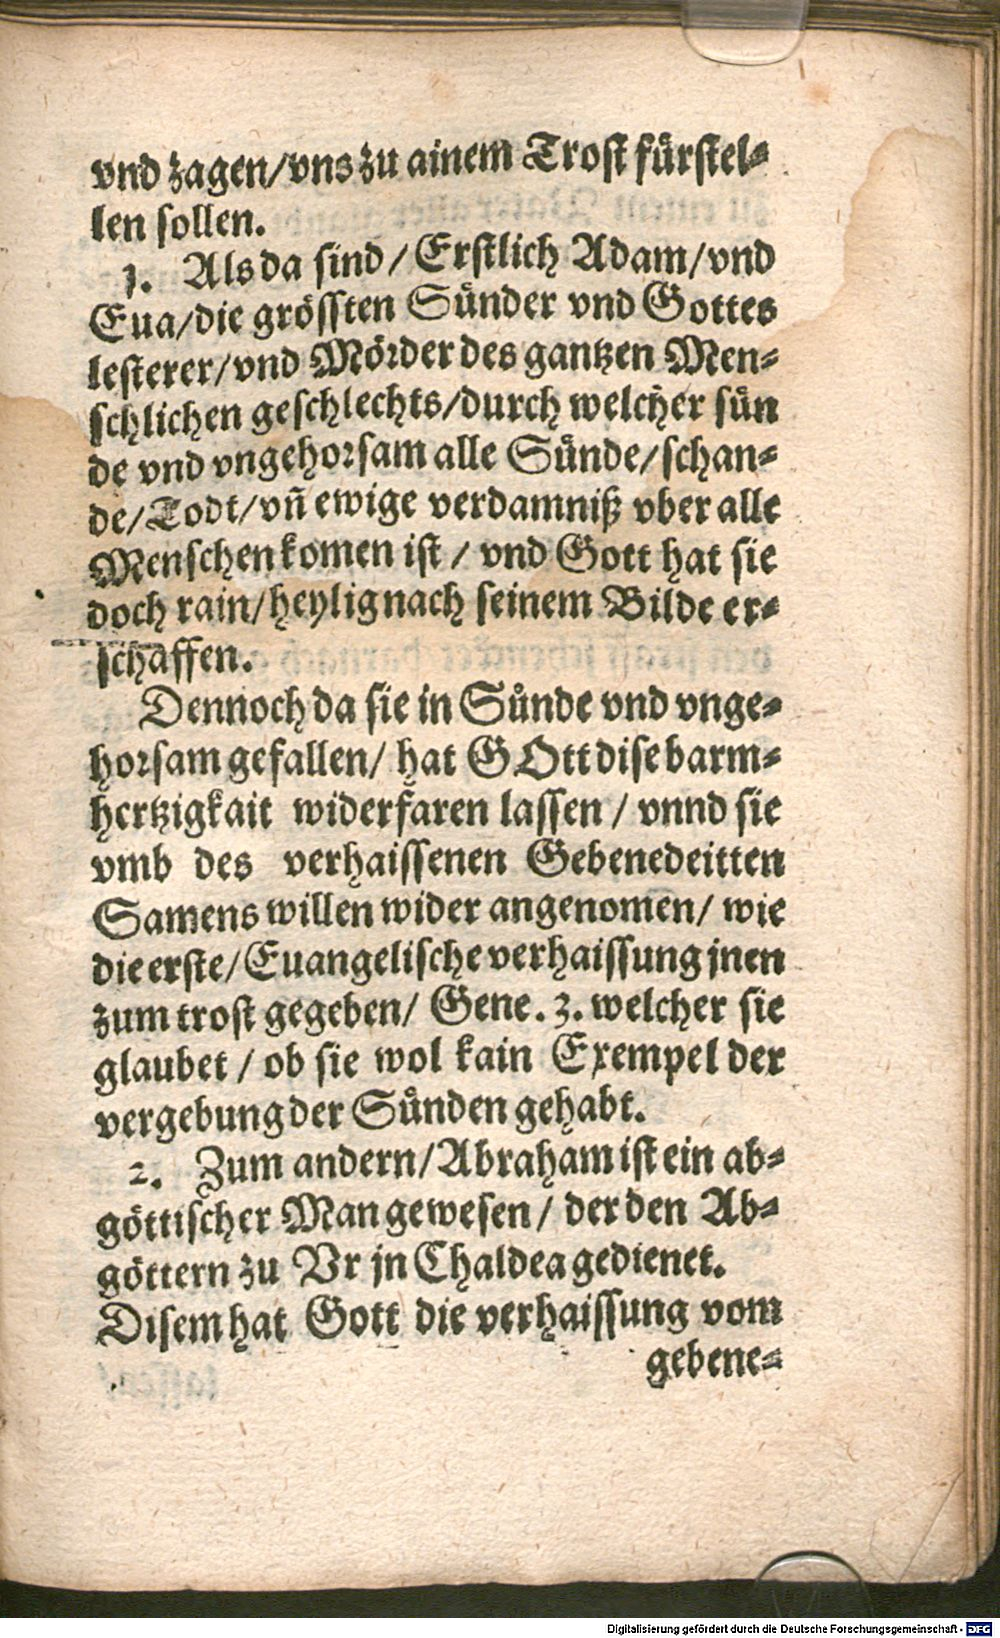 vnd zagen/vns zu ainem Trost fürstel-
len sollen.
1. Als da sind/Erstlich Adam/vnd
Eua/die grössten Sünder vnd Gottes
lesterer/vnd Mörder des gantzen Men-
schlichen geschlechts/durch welcher sün
de vnd vngehorsam alle Sünde/schan-
de/Todt/vñ ewige verdamniß vber alle
Menschen komen ist/ vnd Gott hat sie
doch rain/heylig nach seinem Bilde er-
schaffen.
Dennoch da sie in Sünde vnd vnge-
horsam gefallen/ hat GOtt dise barm-
hertzigkait widerfaren lassen/ vnnd sie
vmb des verhaissenen Gebenedeitten
Samens willen wider angenomen/ wie
die erste/Euangelische verhaissung jnen
zum trost gegeben/ Gene. 3. welcher sie
glaubet/ ob sie wol kain Exempel der
vergebung der Sünden gehabt.
2. Zum andern/Abraham ist ein ab-
göttischer Man gewesen/ der den Ab-
göttern zu Vr jn Chaldea gedienet.
Disem hat Gott die verhaissung vom
gebene-
Digitalisierung gefördert durch die Deutsche Forschungsgemeinschaft - DFG